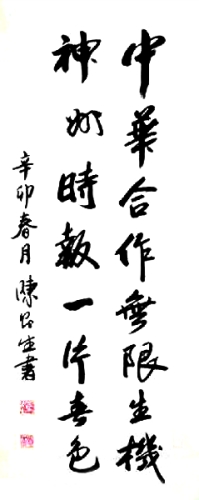 中華合作無限生機
神州時報一片春色
辛卯春月陳昌生書